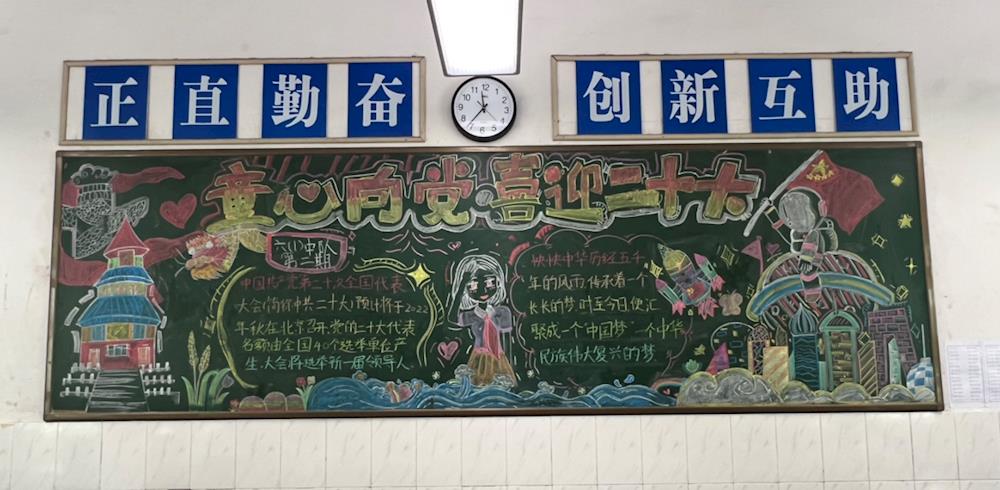 正直勤奋
创新互助
童心向党·喜迎二十大
六(1)中队
第二期
中国共产党第二十次全国代表
大会(简称中共二十大)预计将于2022
年秋在北京召开党的二十大代表
名额由全国40个选举单位产
生.大会将选举新一届领导人
泱泱中华历经五千
年的风雨传承着一个
长长的梦.时至今日便汇
聚成一个"中国梦"一个中华
民族伟大复兴的梦